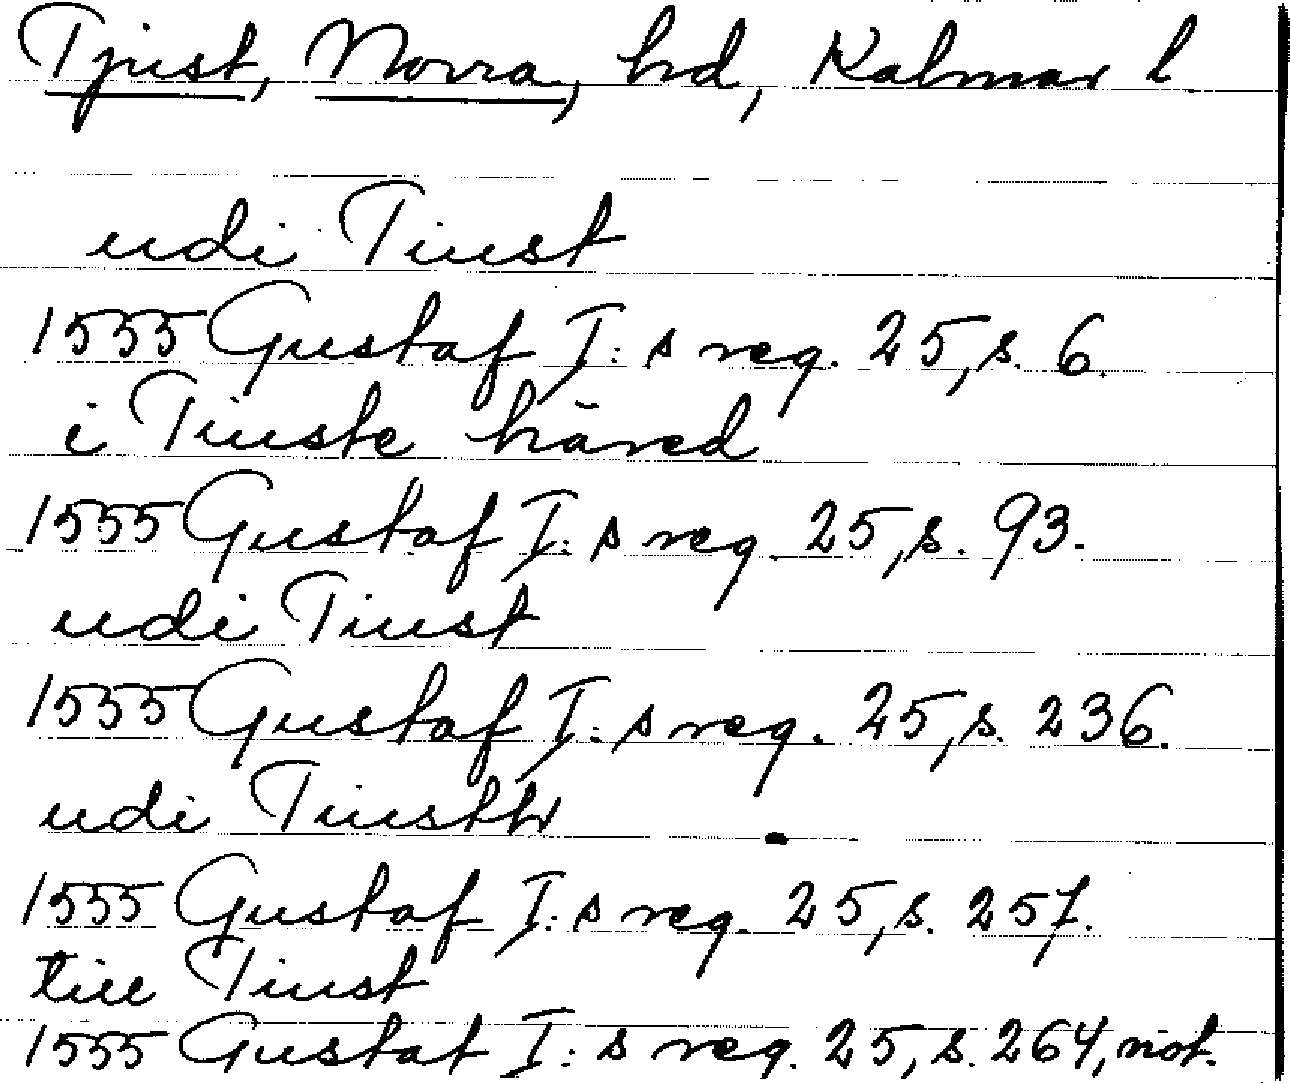 Tjust, Norra, hd, Kalmar l
udi Tiust
1555 Gustaf I: s reg. 25, s. 6.
i Tiuste häred
1555 Gustaf I: s reg. 25, s. 93.
udi Tiust
1555 Gustaf I: s reg. 25, s. 236.
udi Tiusth
1555 Gustaf I: s reg. 25, s. 257.
till Tiust
1555 Gustaf I: s reg. 25, s. 264, not.